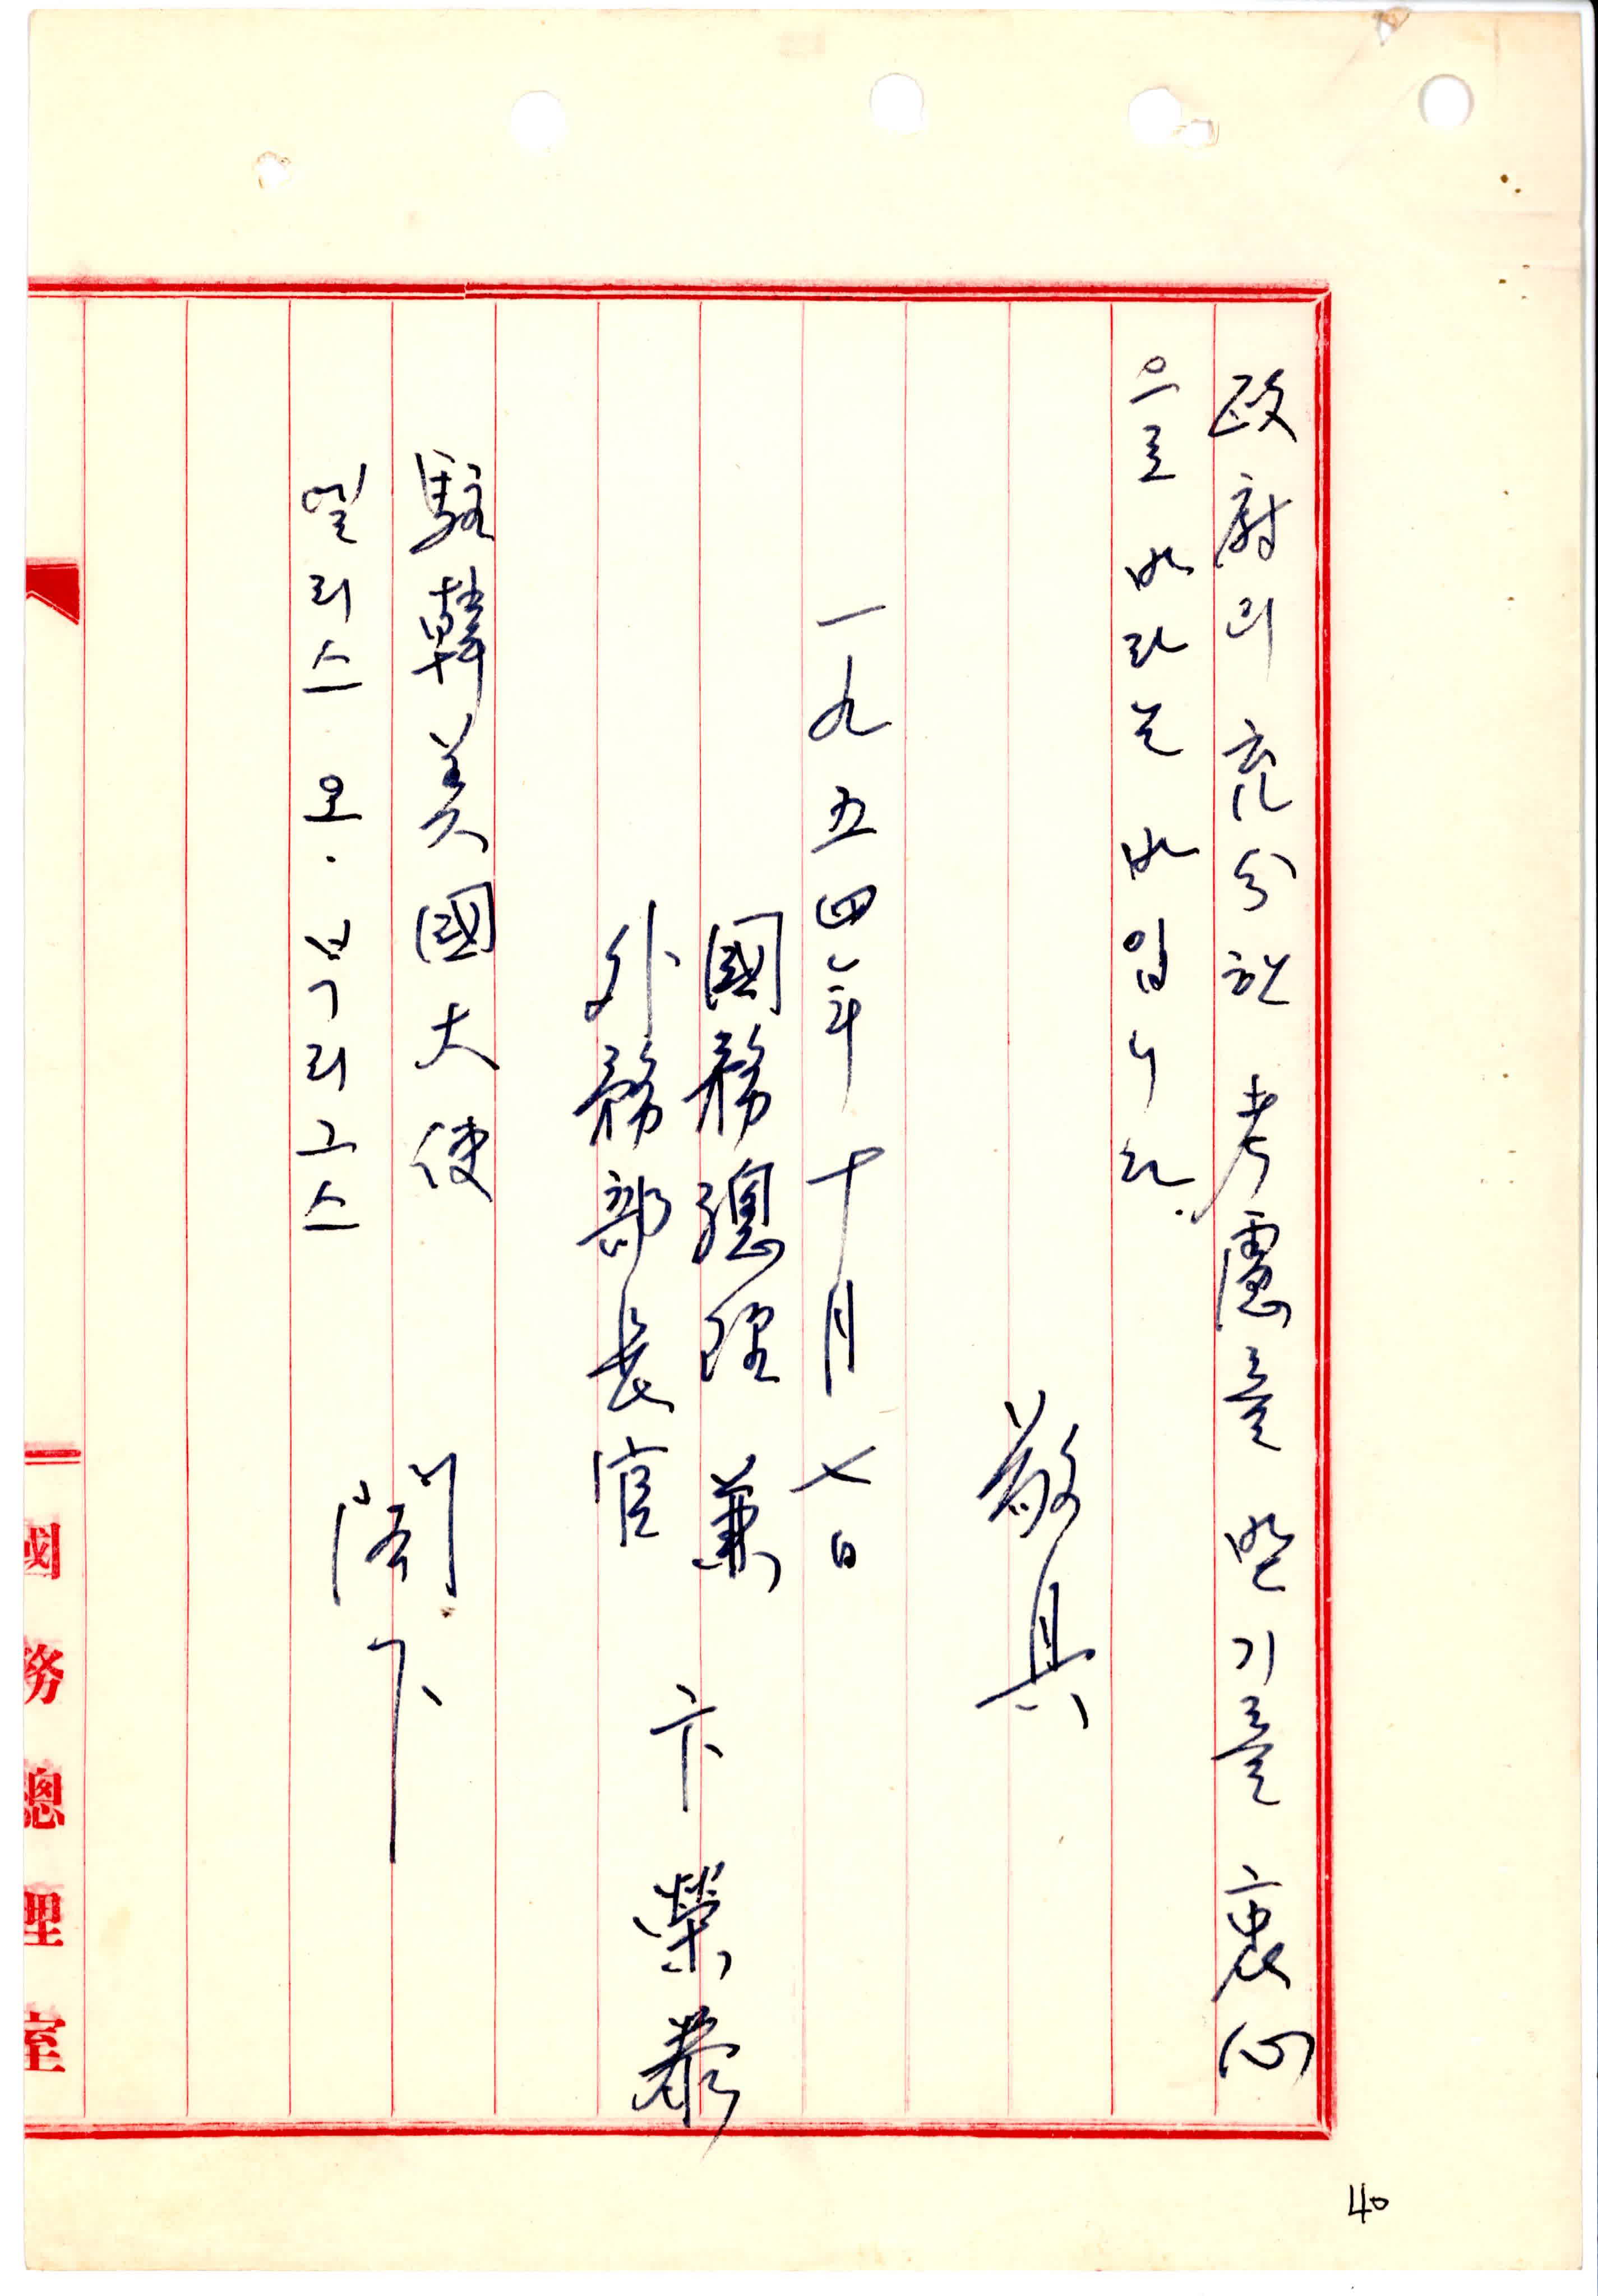 政府의 充分한 考慮를 받기를 衷心
으로 바라는 바입니다.
敬具
一九五四年 十月 七日
國務總理 兼
外務部長官
卞榮泰
駐韓美國大使
엘리스 오·부리그스
閣下
國務總理室
40